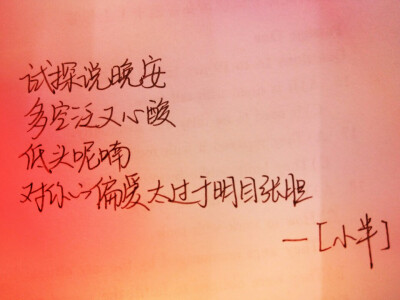 试探说晚安
多空泛又心酸
低头呢喃
对你的偏爱太过于明目张胆
—[小半]